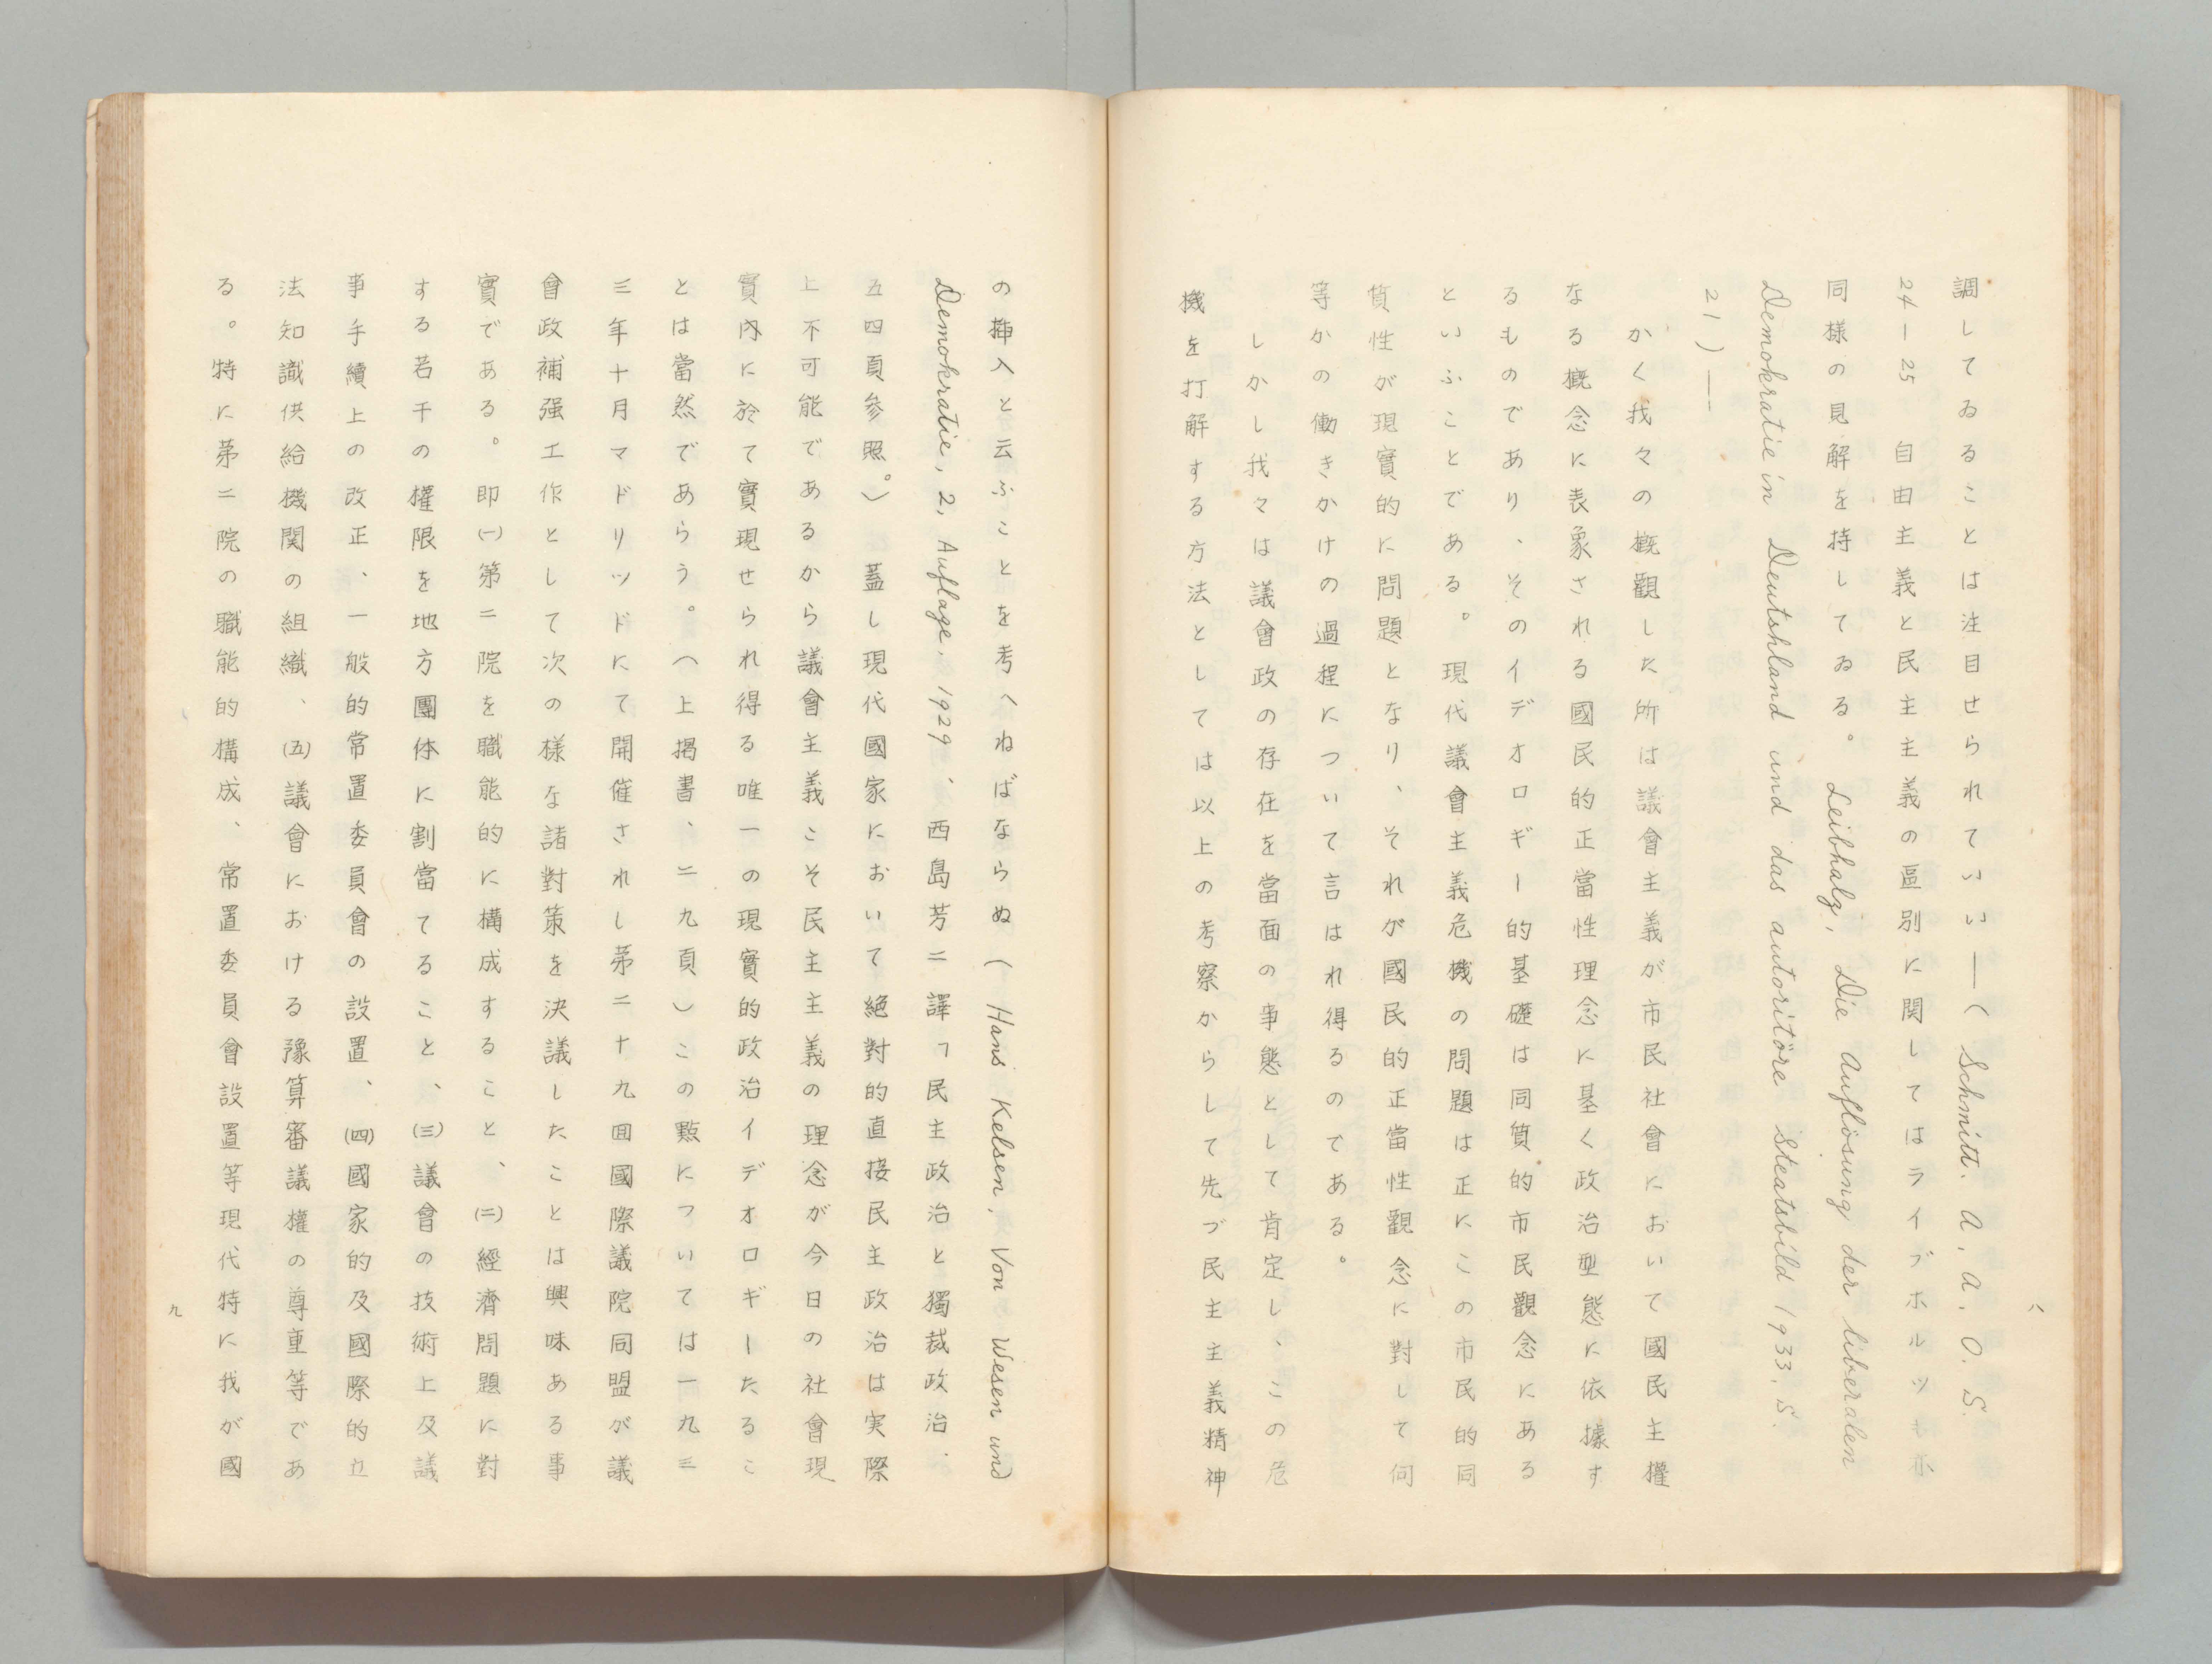 八
調してゐることは注目せられていい―(Schmitt. A. A. O. S.
24―25 自由主義と民主主義の區別に関してはライブホルツも亦
同様の見解を持してゐる。Leibhalg, Die Auflösung der liberalen
Demokratie in Deutshland und das autoritöre Steatsbild 1933, S.
21)―
かく我々の概觀した所は議會主義が市民社會において國民主權
なる概念に表象される國民的正當性理念に基く政治型態に依據す
るものであり、そのイデオロギー的基礎は同質的市民觀念にある
といふことである。現代議會主義危機の問題は正にこの市民的同
質性が現實的に問題となり、それが國民的正當性觀念に對して何
等かの働きかけの過程について言はれ得るのである。
しかし我々は議會政の存在を當面の事態として肯定し、この危
機を打解する方法としては以上の考察からして先づ民主主義精神
の挿入と云ふことを考へねばならぬ(Hans Kelsen, Von Wesen und
Demokratie, 2, Auflage. 1929、西島芳二譯「民主政治と獨裁政治.
五四頁参照。)蓋し現代國家において絶對的直接民主政治は実際
上不可能であるから議會主義こそ民主主義の理念が今日の社會現
實内に於て實現せられ得る唯一の現實的政治イデオロギーたるこ
とは當然であらう。(上揭書、二九頁)この點については一九三
三年十月マドリッドにて開催されし第二十九回國際議院同盟が議
會政補强工作として次の様な諸對策を決議したことは興味ある事
實である。即㈠第二院を職能的に構成すること、㈡經濟問題に對
する若干の權限を地方團体に割當てること、㈢議會の技術上及議
事手續上の改正、一般的常置委員會の設置、㈣國家的及國際的立
法知識供給機関の組織、㈤議會における豫算審議權の尊重等であ
る。特に第二院の職能的構成、常置委員會設置等現代特に我が國
九